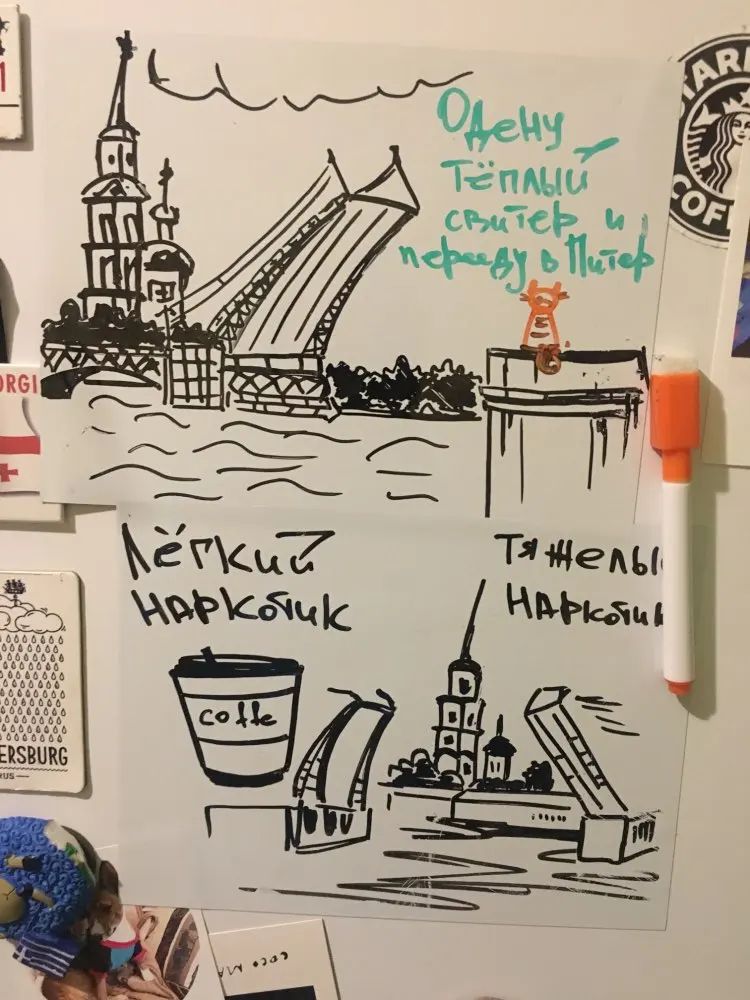 Одену
тёплый
свитер и
перееду в Питер
STAR
COF
ORGI
Лёгкий
наркотик
тяжелы
наркотик
coffe
ERSBURG
RUS
COCO MA